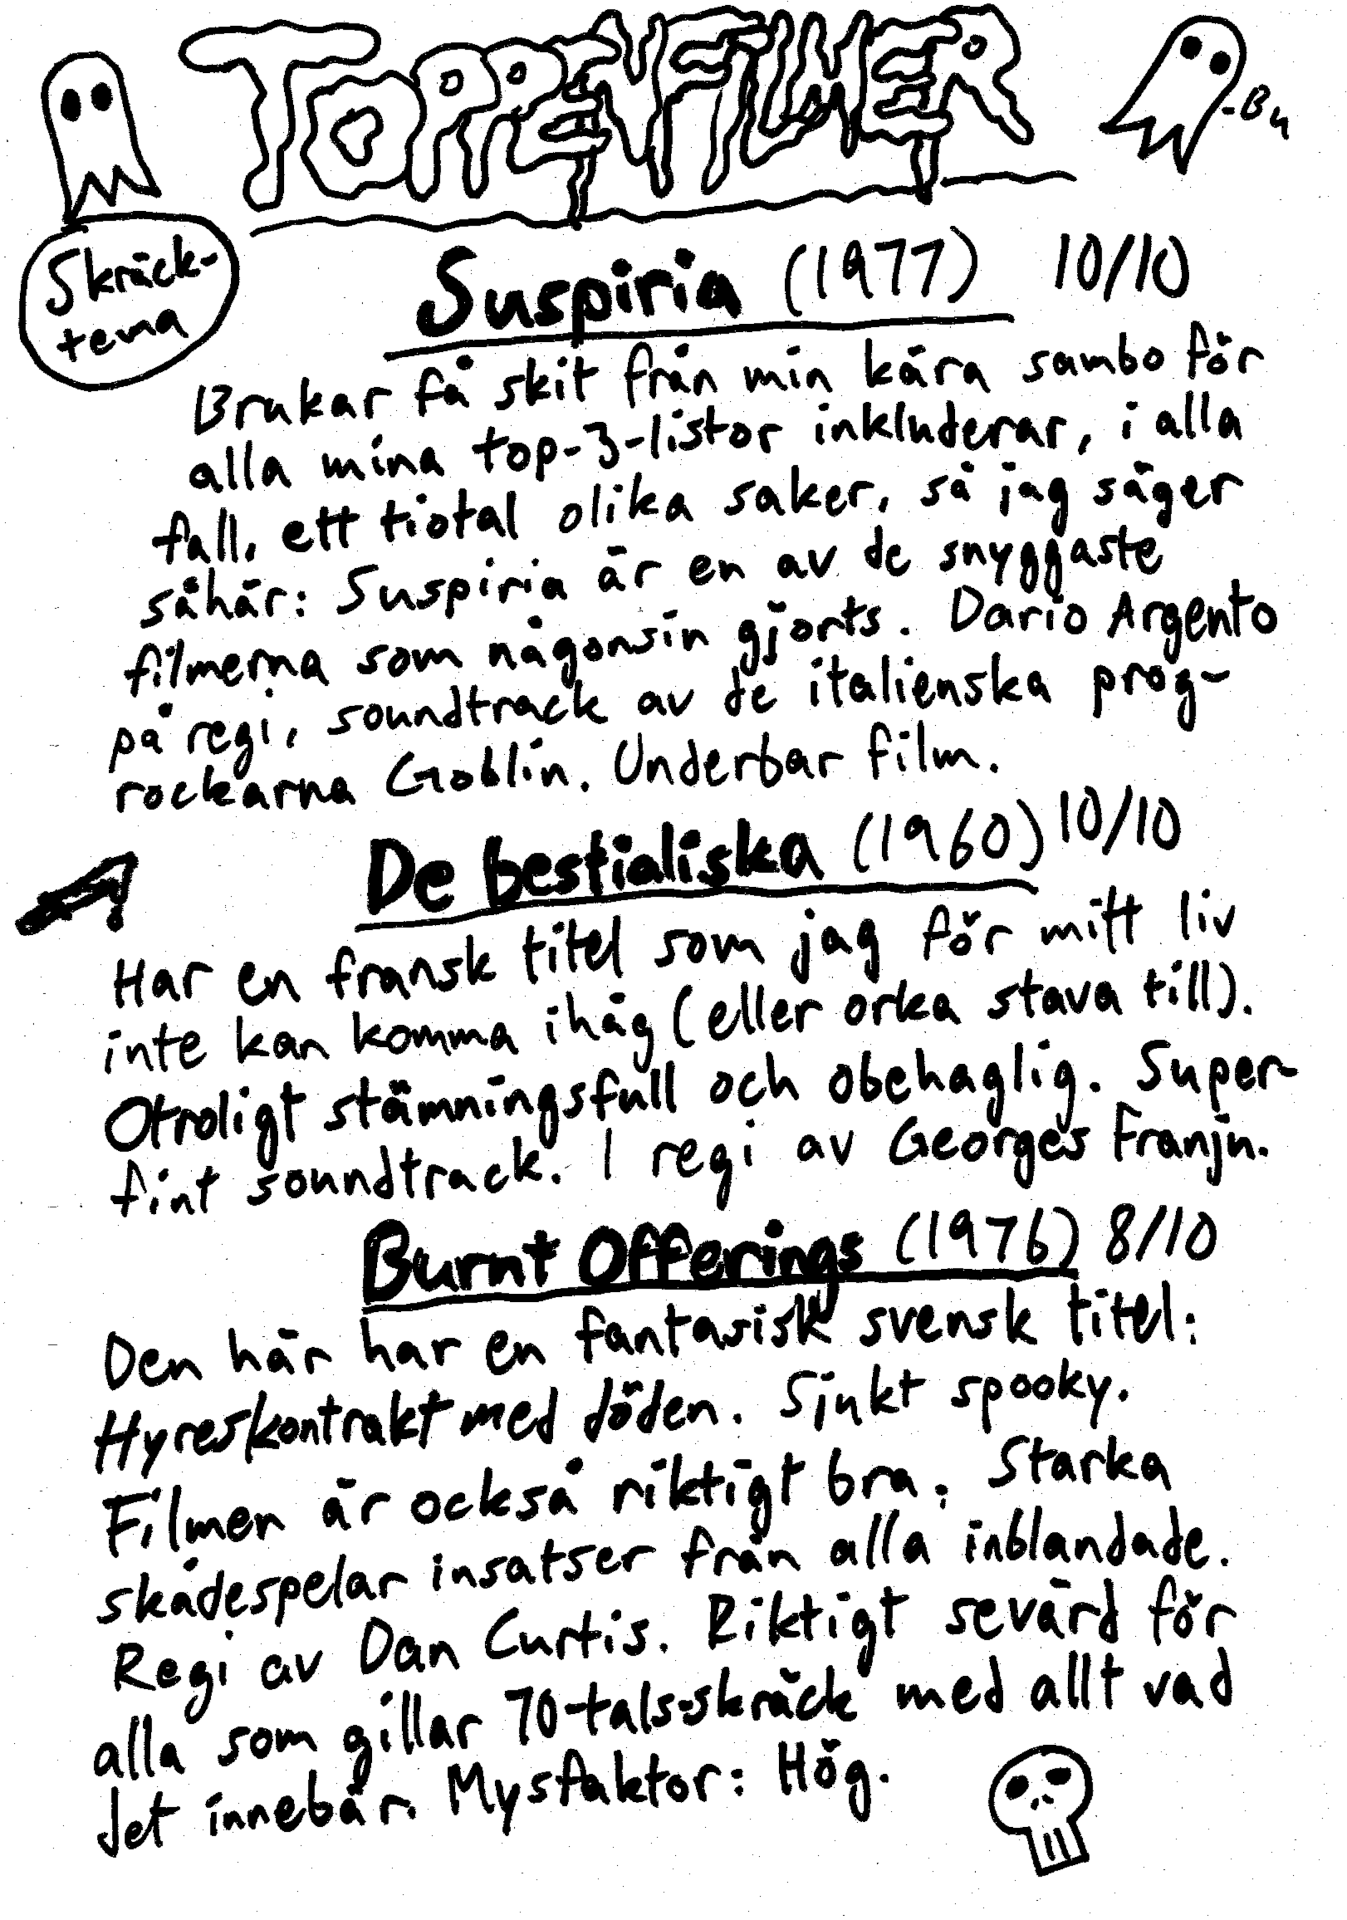 TOPPENFILMER
-Bu
Skräck-
tema
Suspiria (1977) 10/10
Brukar få skit från min kära sambo för
alla mina top-3-listor inkluderar, i alla
fall, ett tiotal olika saker, så jag säger
såhär: Suspiria är en av de snyggaste
filmerna som någonsin gjorts. Dario Argento
på regi, soundtrack av de italienska prog-
rockarna Goblin. Underbar film.
De bestialiska (1960) 10/10
Har en fransk titel som jag för mitt liv
inte kan komma ihåg (eller orka stava till).
Otroligt stämningsfull och obehaglig. Super-
fint soundtrack. I regi av Georges Franju.
Burnt Offerings (1976) 8/10
Den här har en fantasisk svensk titel:
Hyreskontrakt med döden. Sjukt spooky.
Filmen är också riktigt bra. Starka
skådespelar insatser från alla inblandade.
Regi av Dan Curtis. Riktigt sevärd för
alla som gillar 70-tals-skräck med allt vad
det innebär. Mysfaktor: Hög.